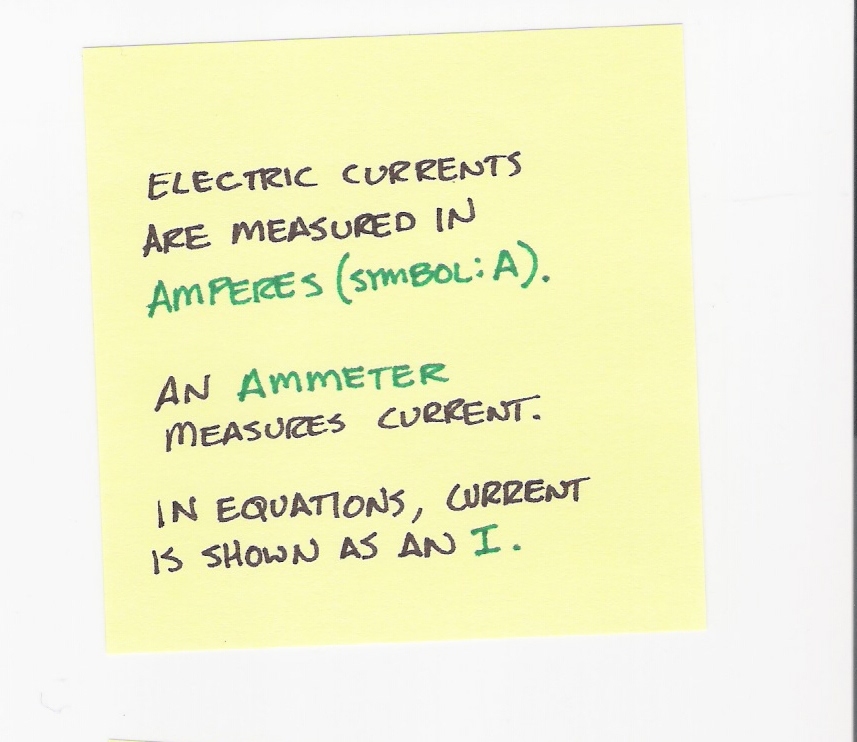 ELECTRIC CURRENTS
ARE MEASURED IN
AMPERES (SYMBOL: A).
AN AMMETER
MEASURES CURRENT.
IN EQUATIONS, CURRENT
IS SHOWN AS AN I.